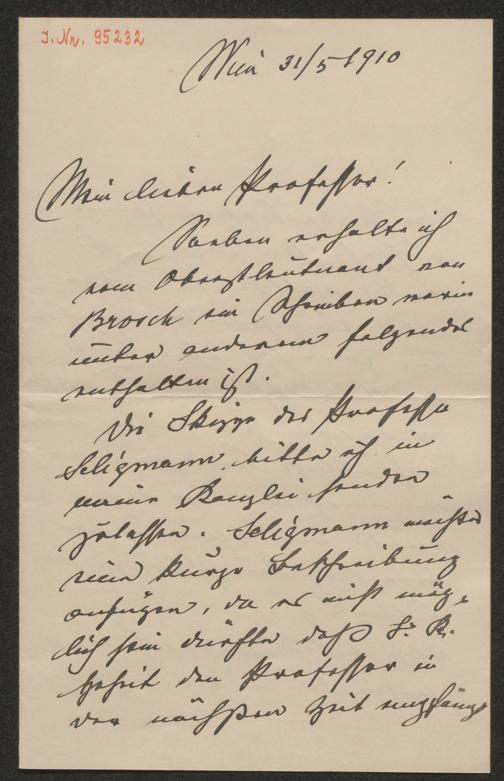 J. Nr. 95232
Wien 31/5 1910
Mein lieber Professor!
Soeben erhalte ich
vom Oberstleutnant von
Brosch ein Schreiben worin
unter anderem folgendes
enthalten ist.
Die Skizze des Professor
Seligmann bitte ich in
meine Kanzlei senden
zu lassen. Seligmann möchte
eine kurze Beschreibung
anfügen, da es nicht mög-
lich sein dürfte daß S. K.
Hoheit den Professor in
der nächsten Zeit empfängt